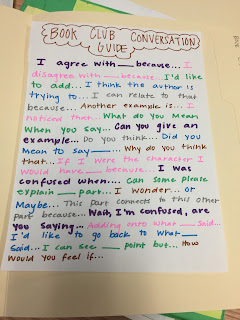 BOOK CLUB CONVERSATION
GUIDE
I agree with __ because... I
disagree with __ because... I'd like
to add... I think the author is
trying to... I can relate to that
because... Another example is... I
noticed that... What do you Mean
When you say... Can you give an
example... Do you think... Did you
Mean to say —... Why do you think
that... If I were the character I
Would have __ because... I was
confused when.... Can some please
explain __ part... I wonder... or
Maybe... This part connects to this other
part because... Wait, I'm confused, are
you saying... Adding onto what __ said...
I'd like to go back to what __
Said... I can see __ point but... How
Would you feel if...